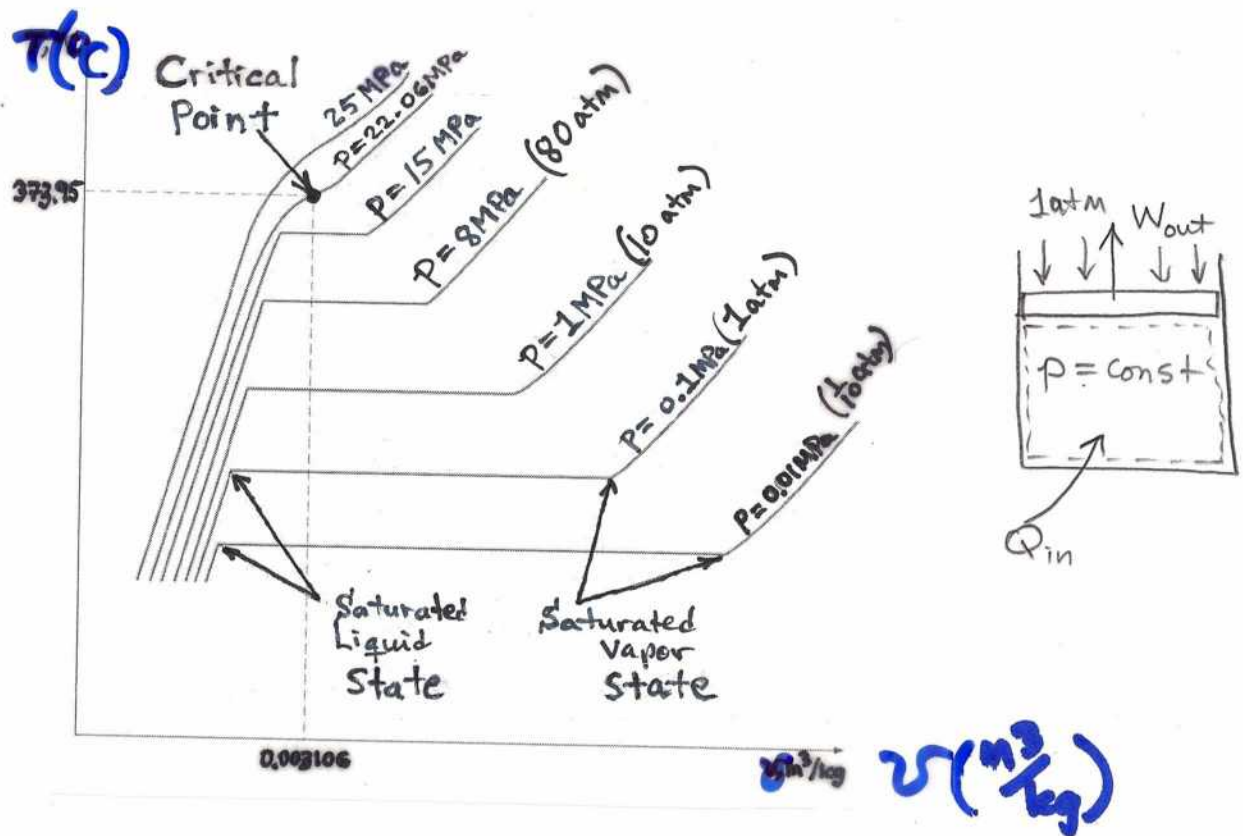 T(°C)
Critical
Point
25 MPa
P=22.06MPa
P=15 MPa
P=8MPa (80atm)
P=1MPa (10 atm)
P=0.1MPa (1atm)
P=0.01MPa (1/10 atm)
373.95
Saturated
Liquid
State
Saturated
Vapor
State
0.003106
m³/kg
v(m³/kg)
1atm
Wout
P=const
Qin